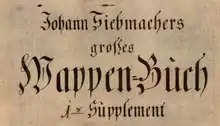 Johann Siebmachers
großes
Wappen=Buch
Supplement